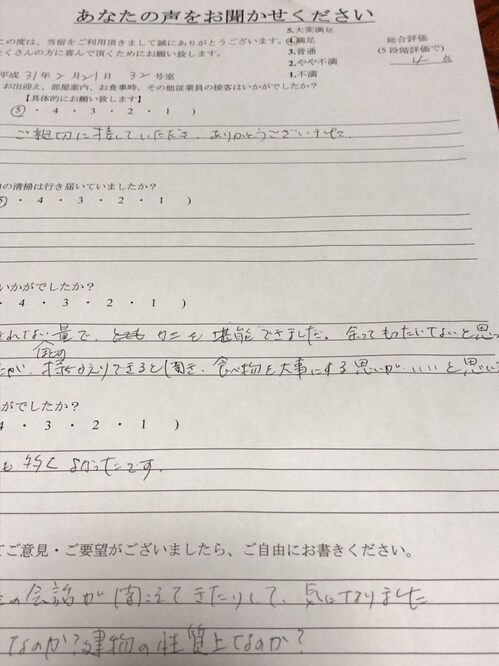 あなたの声をお聞かせください
この度は、当宿をご利用頂きまして誠にありがとうございます。
たくさんの方に喜んで頂くためにお願い致します。
5.大変満足
4.満足
3.普通
2.やや不満
1.不満
総合評価
(5段階評価で)
4 点
平成 31年 2月 21日 32号室
お出迎え、部屋案内、お食事時、その他従業員の接客はいかがでしたか？
【具体的にお願い致します】
5 ・ 4 ・ 3 ・ 2 ・ 1 )
ご親切に接していただき、ありがとうございました。
の清掃は行き届いていましたか？
5 ・ 4 ・ 3 ・ 2 ・ 1 )
いかがでしたか？
・ 4 ・ 3 ・ 2 ・ 1 )
きれない量で、とても カニを堪能できました。余ってもったいないと思っ
持ちかえりできると聞き、食べ物を大事にする思いが、いいと思い
がでしたか？
4 ・ 3 ・ 2 ・ 1 )
も多くよかったです。
てご意見・ご要望がございましたら、ご自由にお書きください。
の会話が聞こえてきたりして、気になりました
なのか？建物の性質上なのか？